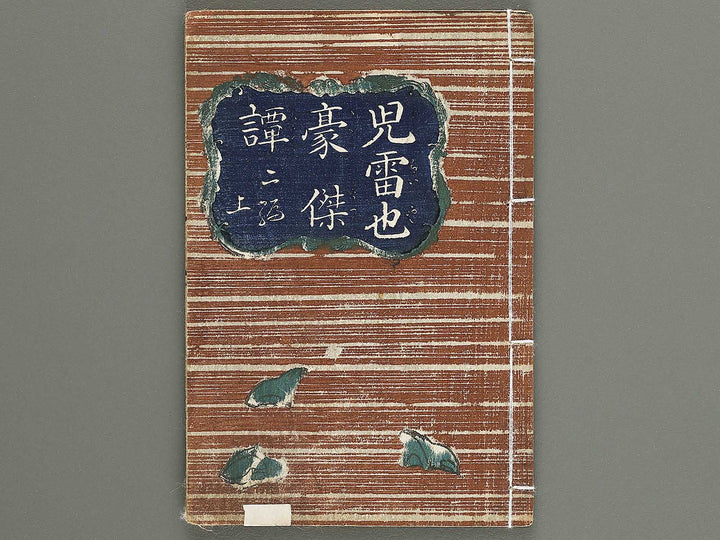 児雷也
豪傑
譚二編
上